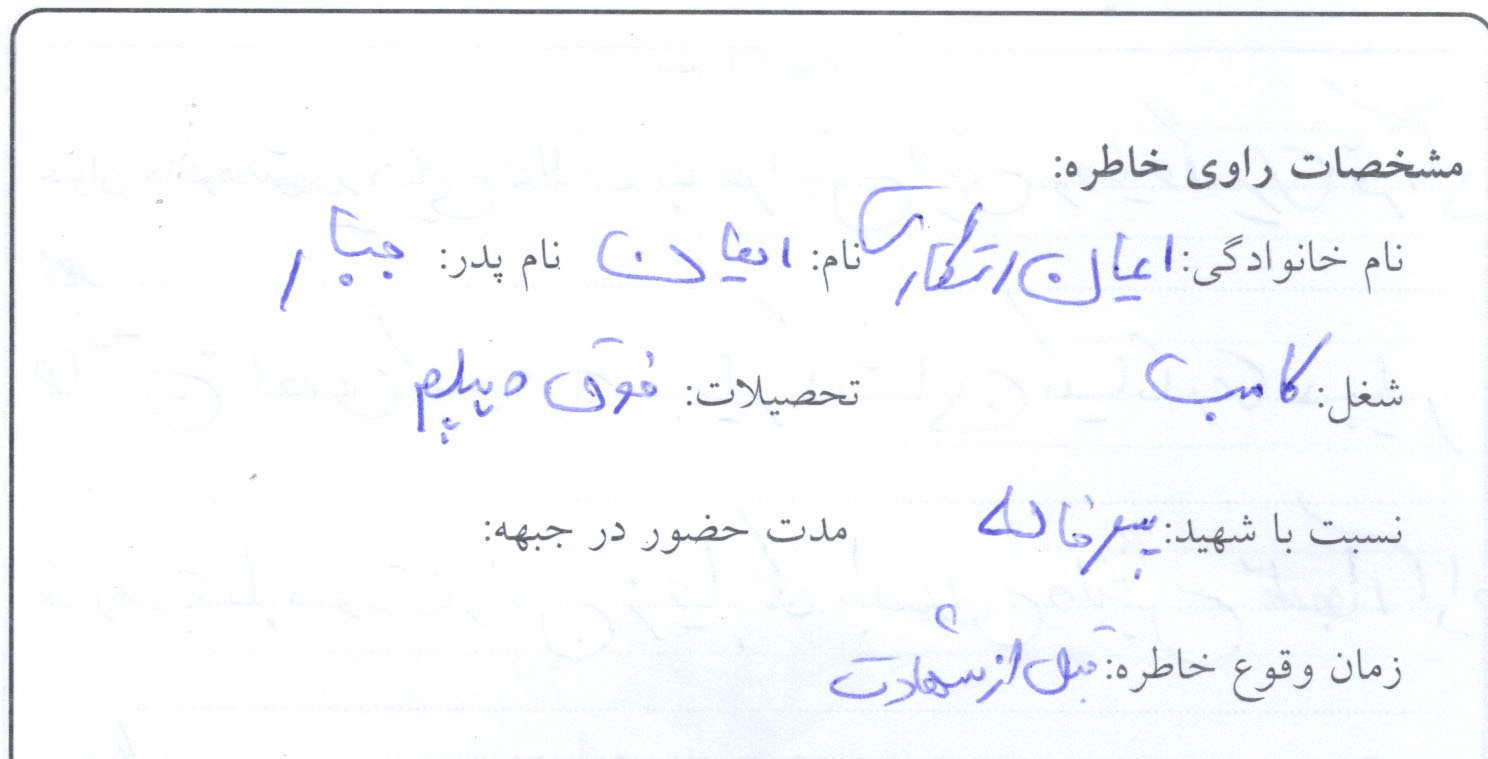 مشخصات راوی خاطره:
نام خانوادگی: نام: نام پدر: جبار
شغل: کاسب تحصیلات: فوق دیپلم
نسبت با شهید: پسر خاله مدت حضور در جبهه:
زمان وقوع خاطره: قبل از شهادت